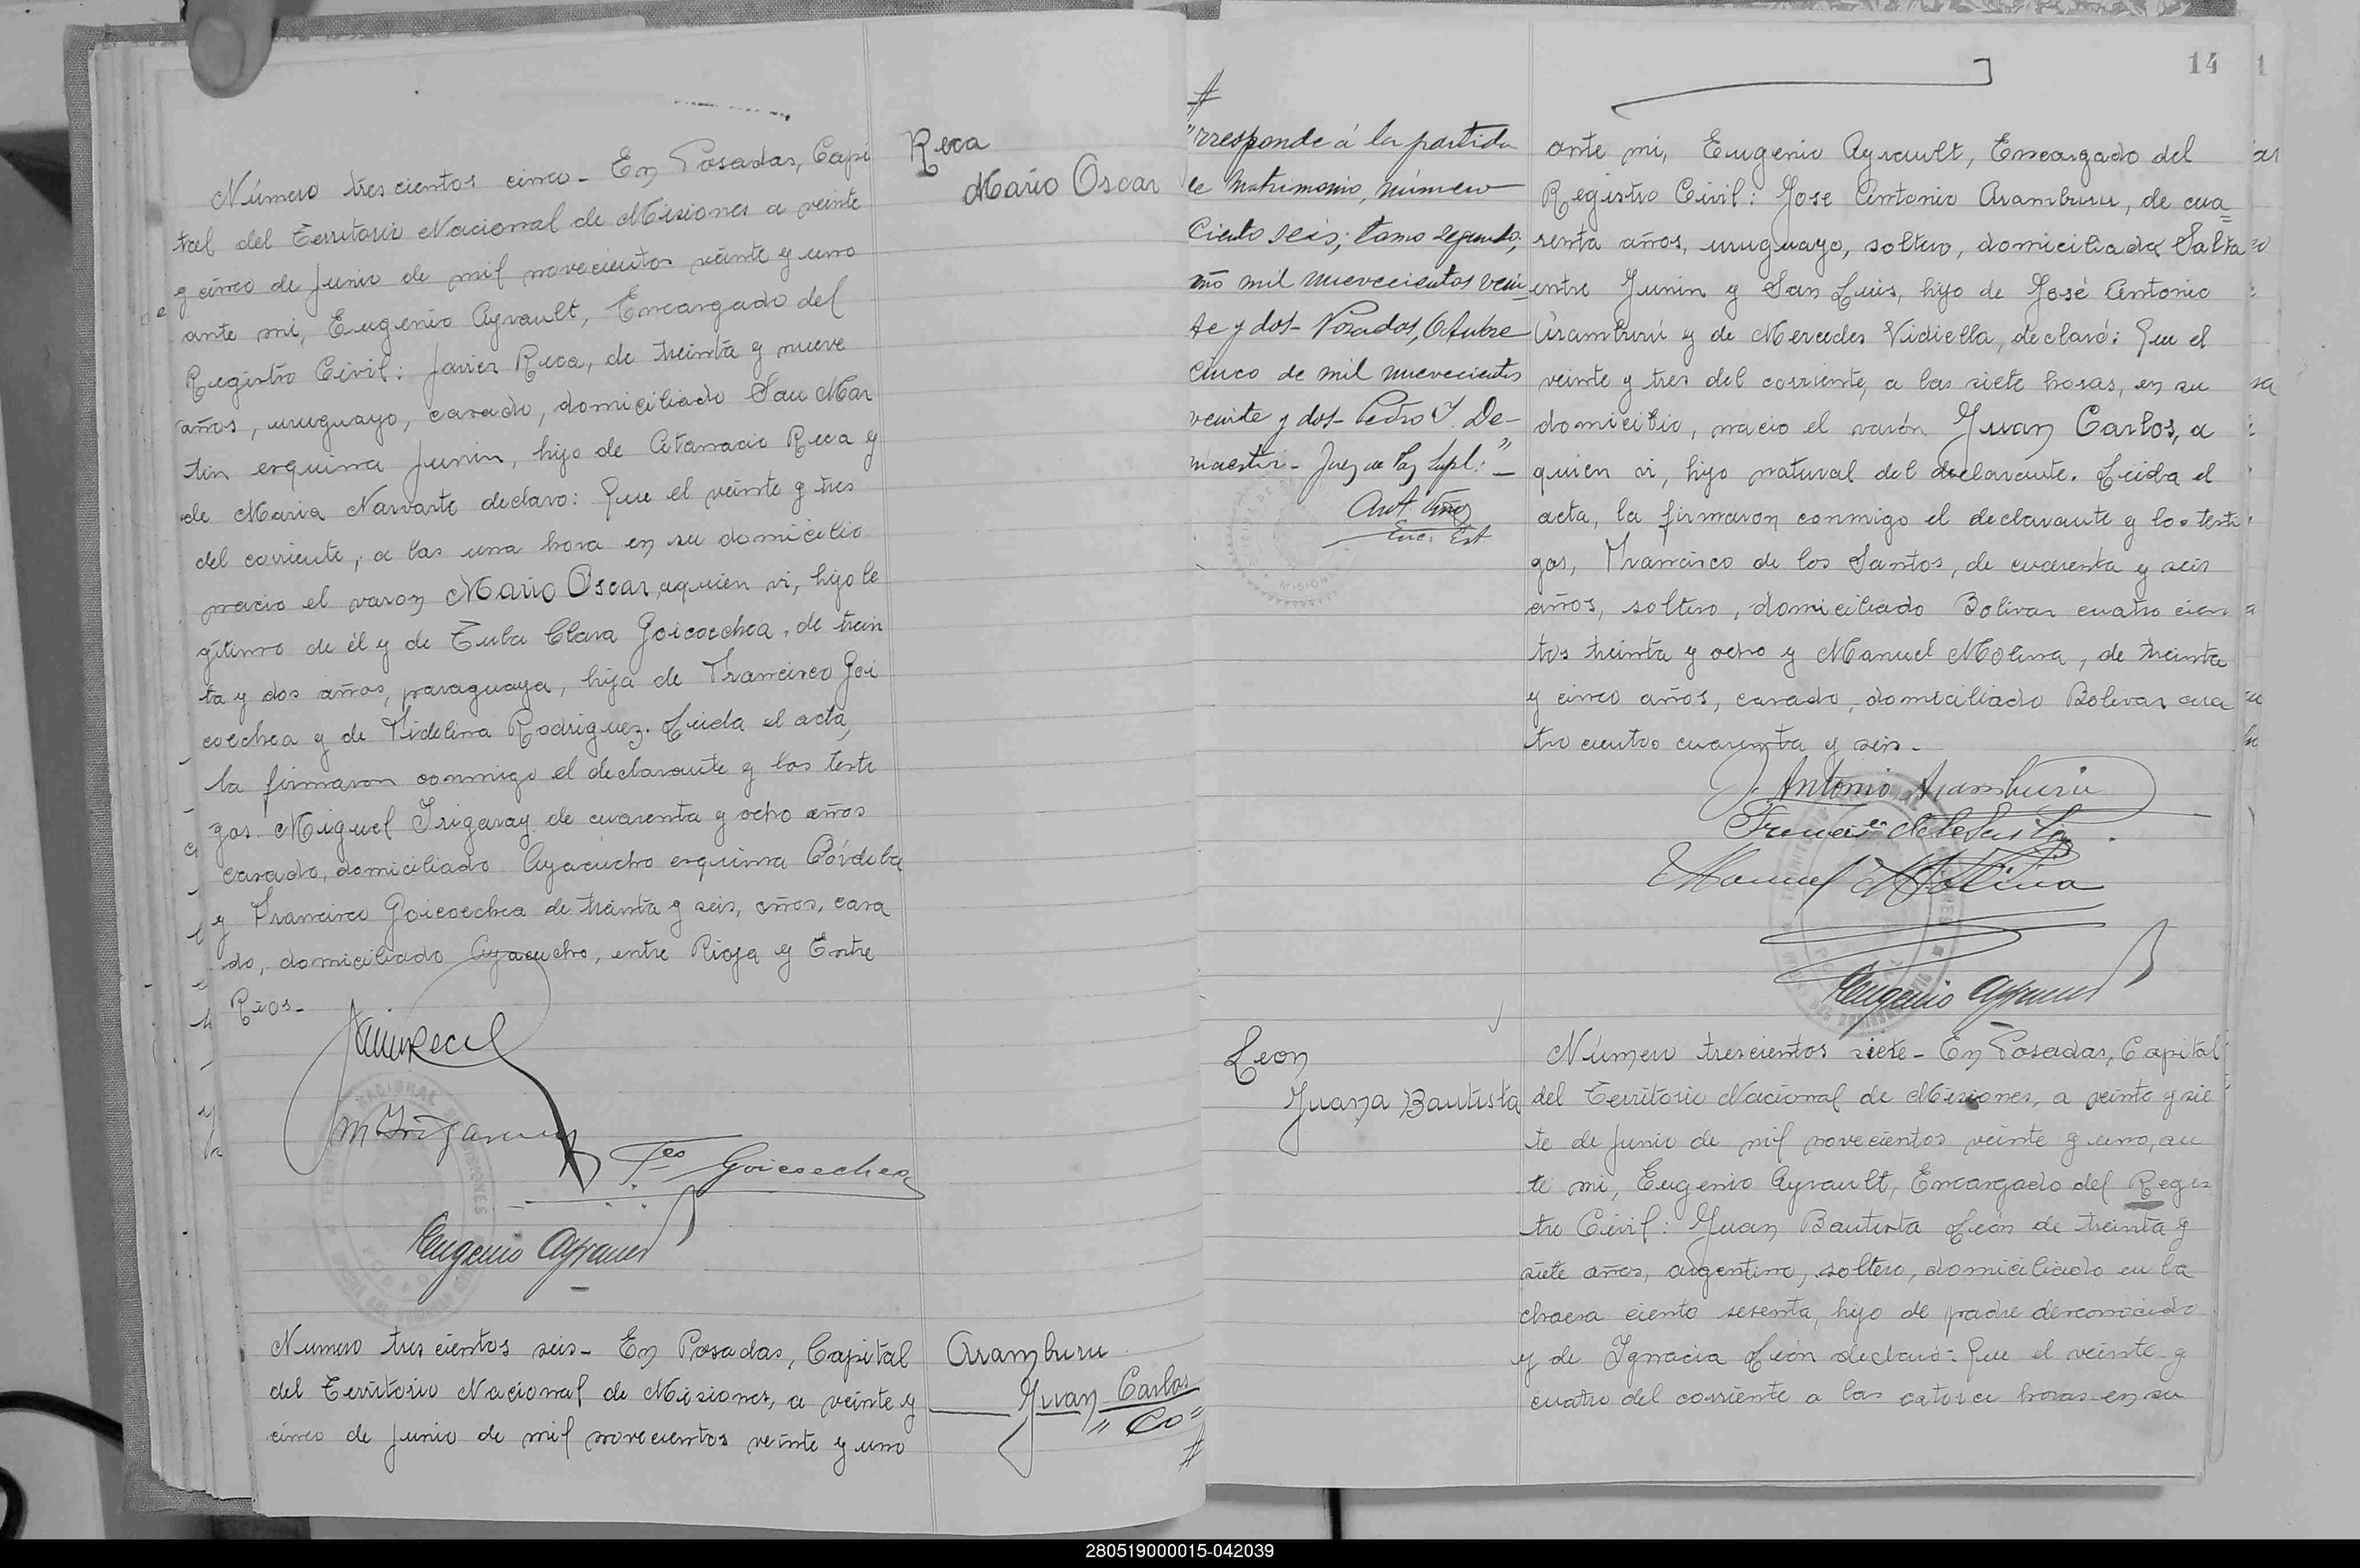 Reca
Mario Oscar
Número tres cientos cinco - En Posadas, Capi
tal del Territorio Nacional de Misiones a veinte
y cinco de Junio de mil novecientos veinte y uno
ante mi, Eugenio Ayrault, Encargado del
Registro Civil: Javier Reca, de treinta y nueve
años, uruguayo, casado, domiciliado San Mar
tin esquina Junin, hijo de Atanacio Reca y
de Maria Narvarte declaro: Que el veinte y tres
del corriente, a las una hora en su domicilio
nacio el varon Mario Oscar, aquien vi, hijo le
gitimo de él y de Tula Clara Goicoechea, de trein
ta y dos años, paraguaya, hija de Francisco Goi
coechea y de Fidelina Rodriguez. Leida el acta,
la firmaron conmigo el declarante y los testi
gos. Miguel Irigaray de cuarenta y ocho años
casado, domiciliado Ayacucho esquina Córdoba
y Francisco Goicoechea de treinta y seis, años, casa
do, domiciliado Ayacucho, entre Rioja y Entre
Rios.-
M Irigaray
Fco Goicoechea
Eugenio Ayrault
Numero tres cientos seis - En Posadas, Capital
del Territorio Nacional de Misiones, a veinte y
cinco de Junio de mil novecientos veinte y uno
Aramburu
Juan Carlos
" Co"
#
14
#
"rresponde á la partida
de matrimonio, número
Ciento seis; tomo segundo;
año mil nuevecientos vein
te y dos - Posadas, Octubre
cinco de mil nuevecientos
veinte y dos - Pedro J. De-
maestri - Juez de Paz Supl: " -
Enc. Est.
ante mi, Eugenio Ayrault, Encargado del
Registro Civil: Jose Antonio Aramburu, de cua=
renta años, uruguayo, soltero, domiciliado Salta
entre Junin y San Luis, hijo de José Antonio
Aramburú y de Mercedes Vidiella, declaró: Que el
veinte y tres del corriente, a las siete horas, en su
domicilio, nacio el varón Juan Carlos, a
quien vi, hijo natural del declarante. Leida el
acta, la firmaron conmigo el declarante y los testi
gos, Francisco de los Santos, de cuarenta y seis
años, soltero, domiciliado Bolivar cuatro cien
tos treinta y ocho y Manuel Molina, de treinta
y cinco años, casado, domiciliado Bolivar cua
tro cientos cuarenta y seis.-
J. Antonio Aramburú
Manuel Molina
Eugenio Ayrault
Leon
Juana Bautista
Número trescientos siete - En Posadas, Capital
del Territorio Nacional de Misiones, a veinte y sie
te de Junio de mil novecientos veinte y uno, an
te mi, Eugenio Ayrault, Encargado del Regis
tro Civil: Juan Bautista León de treinta y
siete años, argentino, soltero, domiciliado en la
chacra ciento sesenta, hijo de padre desconocido
y de Ignacia León declaró: Que el veinte y
cuatro del corriente a las catorce horas en su
280519000015-042039